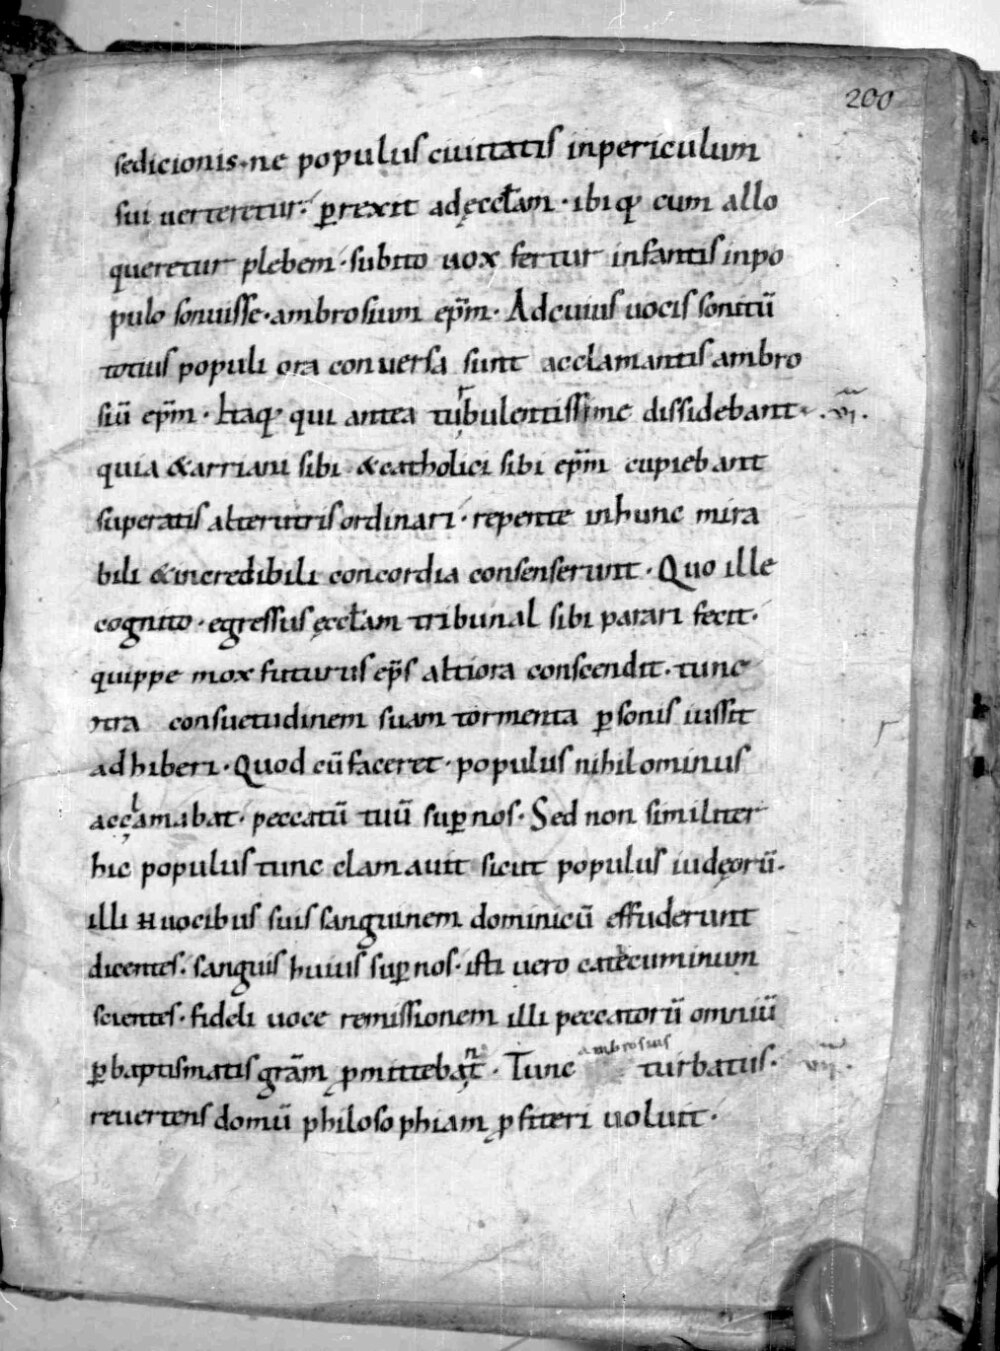 200
sedicionis · ne populus ciuitatis inpericulum
sui uerteretur · ꝑrexit adęccłam · ibiq; cum allo
queretur plebem · subito uox fertur infantis inpo
pulo sonuisse · ambrosium ep̄m · Adcuius uocis sonitū
totius populi ora conuersa sunt acclamantis ambro
siū ep̄m · Itaq; qui antea turbulentissime dissidebant · .vi.
quia &arriani sibi &catholici sibi ep̄m cupiebant
superatis alterutris ordinari · repente inhunc mira
bili &incredibili concordia consenserunt · Quo ille
cognito · egressus ęccłam tribunal sibi parari fecit ·
quippe mox futurus ep̄s altiora conscendit · tunc
ɔtra consuetudinem suam tormenta ꝑsonis iussit
adhiberi · Quod cū faceret · populus nihilominus
acclamabat · peccatū tuū suꝑ nos · Sed non similiter
hic populus tunc clamauit sicut populus iudęorū ·
illi n uocibus suis sanguinem dominicū effuderunt
dicentes · sanguis huius suꝑ nos · isti uero catecuminum
scientes · fideli uoce remissionem illi peccatorū omniū
ꝑ baptismatis grām ꝓmittebant · Tunc ambrosius turbatus · .vii.
reuertens domū philosophiam ꝓfiteri uoluit ·